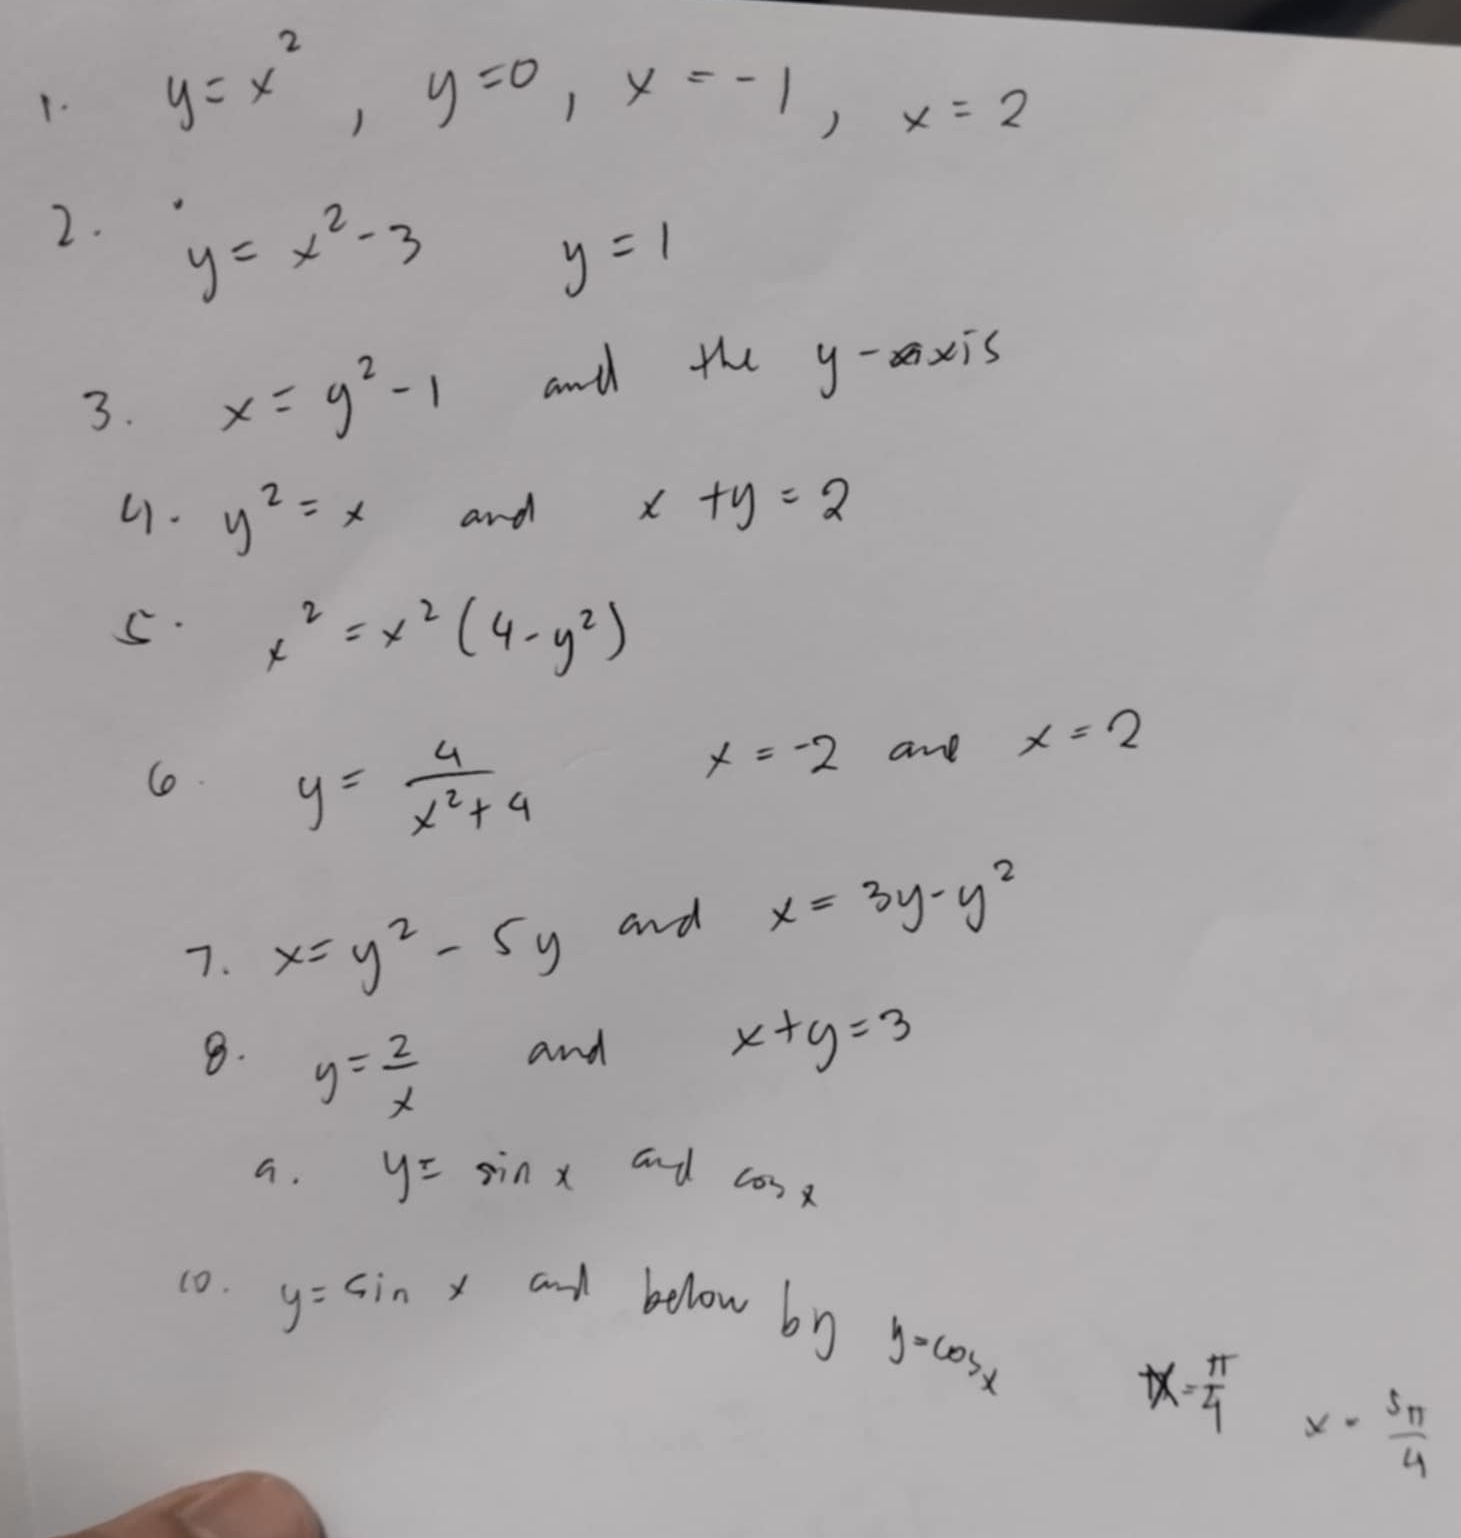 1. y = x², y = 0, x = -1, x = 2
2. y = x² - 3 y = 1
3. x = y² - 1 and the y-axis
4. y² = x and x + y = 2
5. x² = x² (4 - y²)
6. y = 4/(x² + 4) x = -2 and x = 2
7. x = y² - 5y and x = 3y - y²
8. y = 2/x and x + y = 3
9. y = sin x and cos x
10. y = sin x and below by y = cos x x = π/4 x = 5π/4